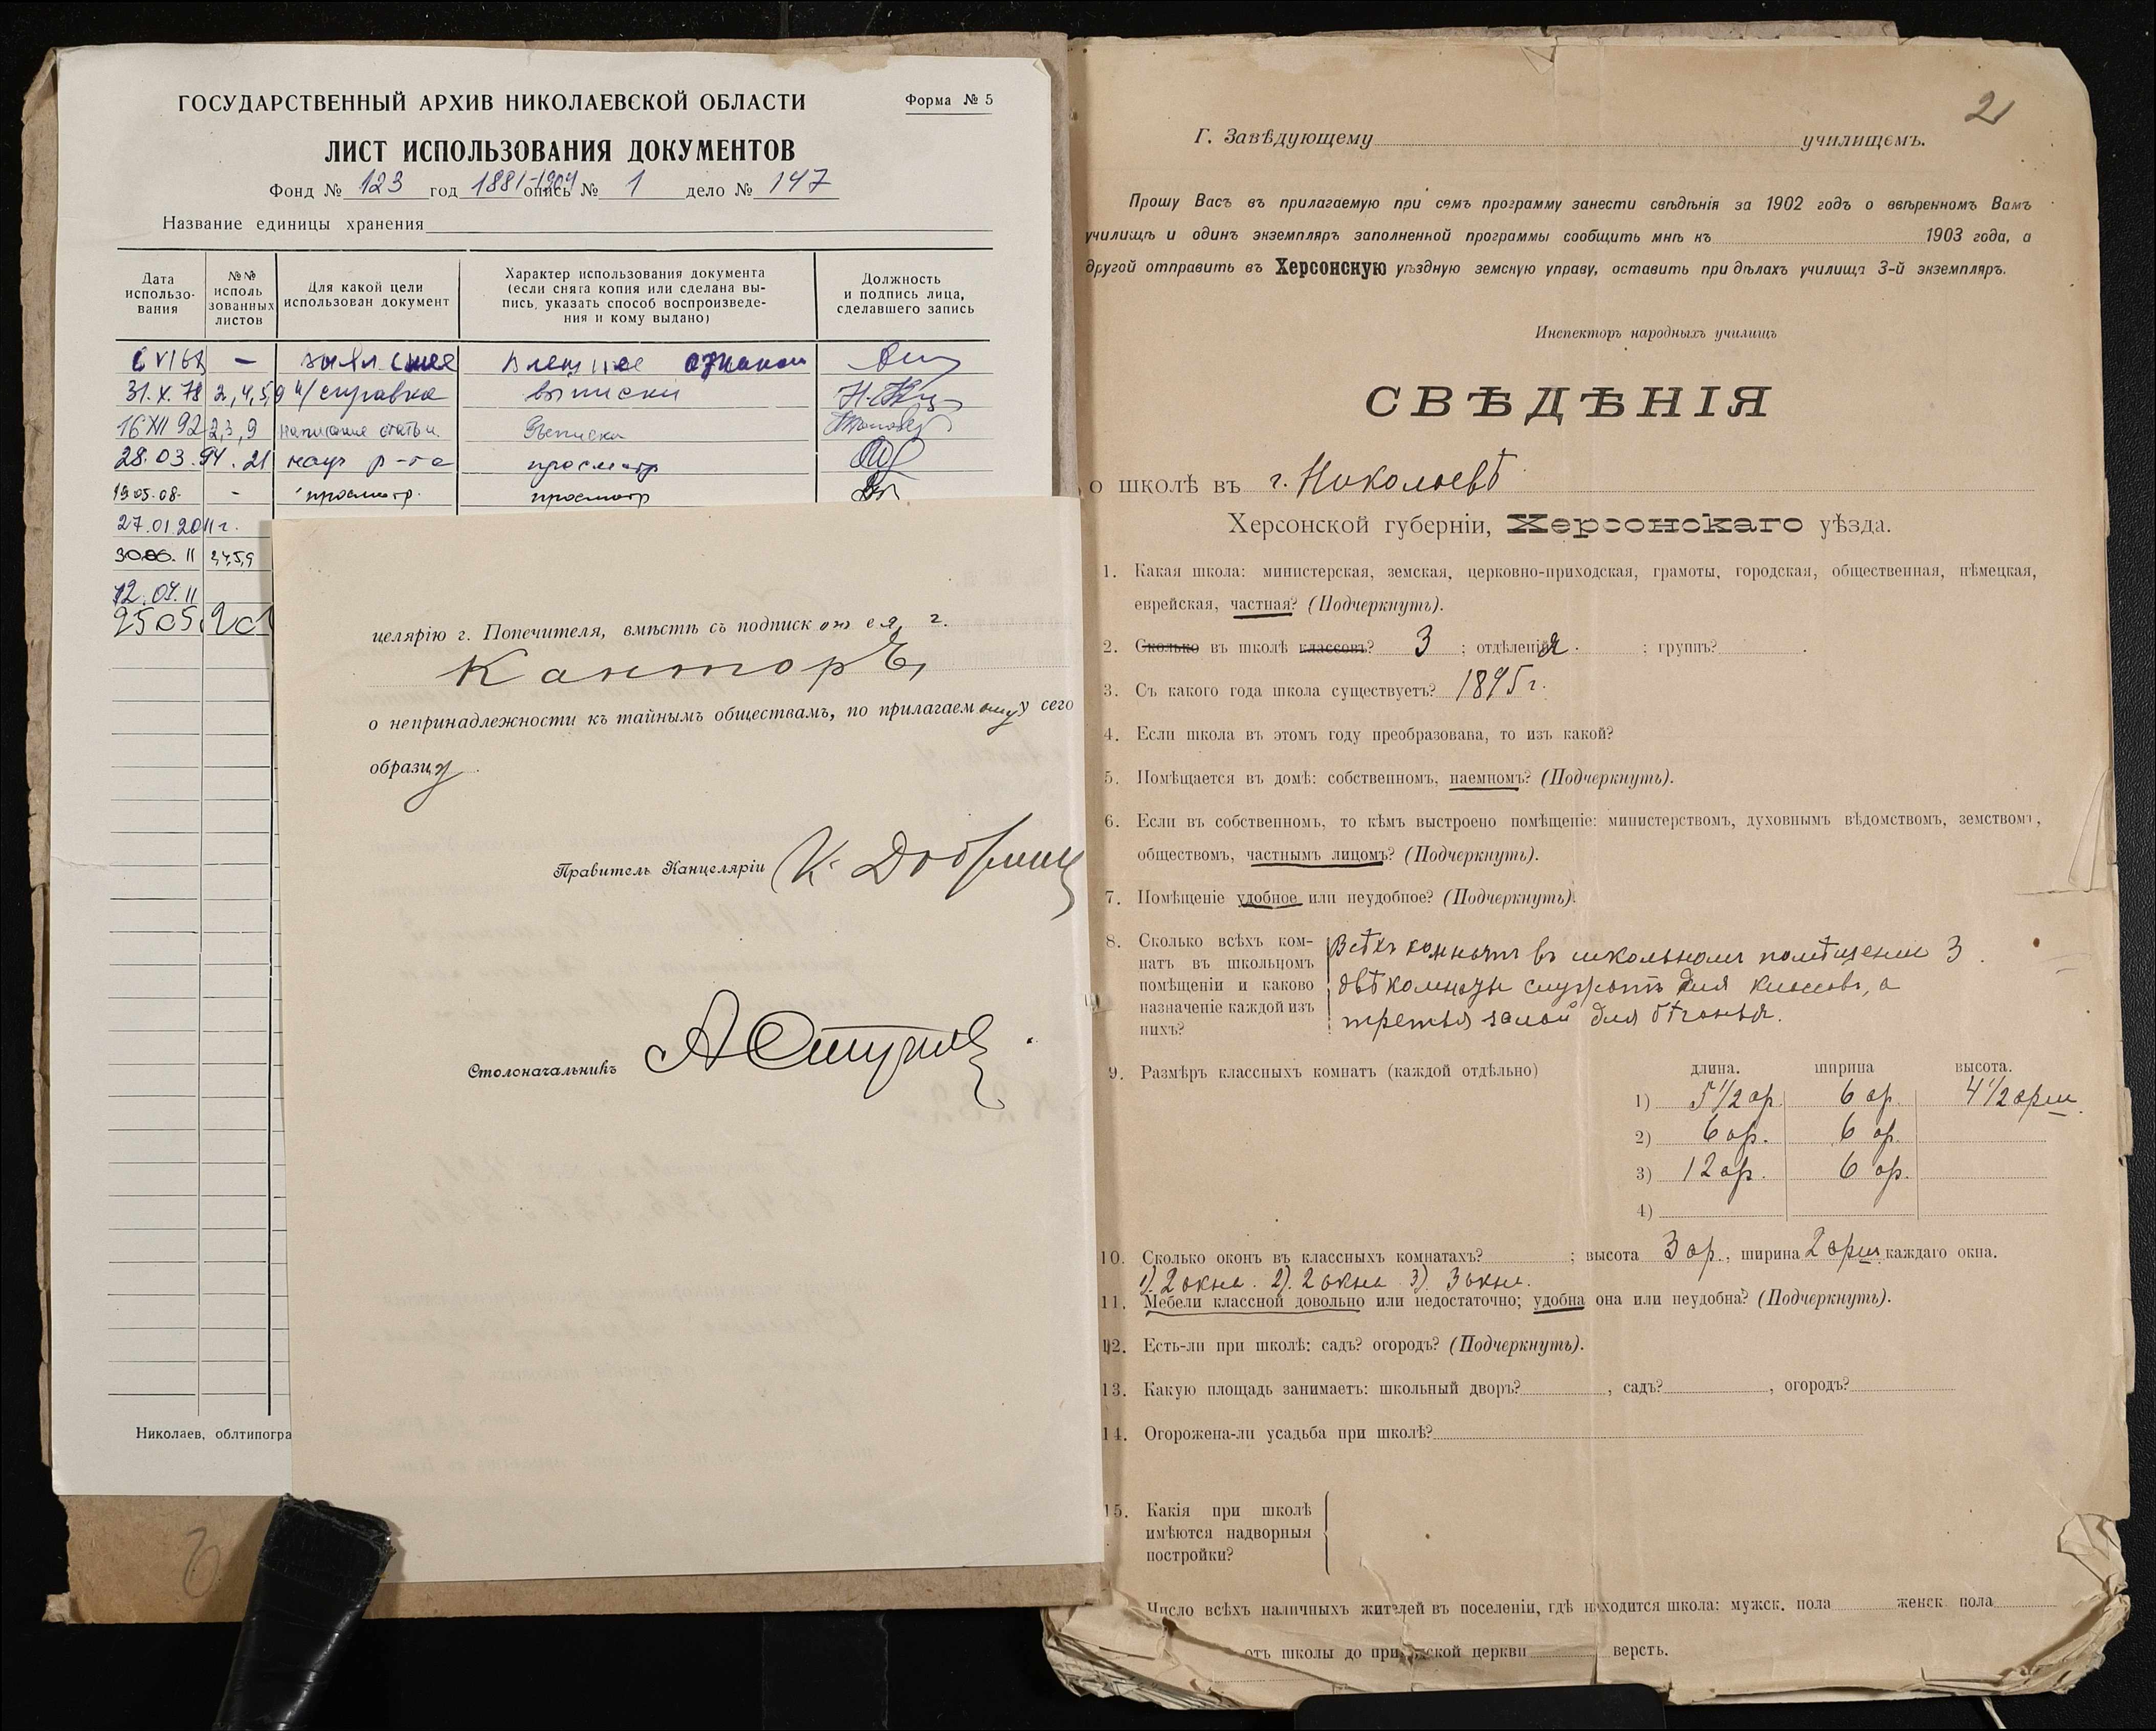 ГОСУДАРСТВЕННЫЙ АРХИВ НИКОЛАЕВСКОЙ ОБЛАСТИ
Форма № 5
ЛИСТ ИСПОЛЬЗОВАНИЯ ДОКУМЕНТОВ
Фонд № 123 год 1881-1904 опись № 1 дело № 147
Название единицы хранения
Дата использо-
вания
№№
исполь
зованных
листов
Для какой цели
использован документ
Характер использования документа
(если снята копия или сделана вы-
пись, указать способ воспроизведе-
ния и кому выдано)
Должность
и подпись лица,
сделавшего запись
31.X.78 2,4,5,9 справка выписки
16 XII 92 2,3,9 написание статьи выписка
28.03.94. 21 просмотр
19.05.08. - просмотр. просмотр
27.01.2011г.
30.06.11
12.07.11
Николаев, облтипогра
целярію г. Попечителя, вмѣстѣ съ подписк ея г.
Канторъ,
о непринадлежности къ тайнымъ обществамъ, по прилагаемому сего
образцу.
Правитель Канцеляріи
Столоначальникъ
2
Г. Завѣдующему училищемъ.
Прошу Васъ въ прилагаемую при семъ программу занести свѣдѣнія за 1902 годъ о ввѣренномъ Вамъ
училищѣ и одинъ экземпляръ заполненной программы сообщить мнѣ къ 1903 года, а
другой отправить въ Херсонскую уѣздную земскую управу, оставить при дѣлахъ училища 3-й экземпляръ.
Инспекторъ народныхъ училищъ
СВѢДѢНІЯ
о школѣ въ г. Николаевѣ
Херсонской губерніи, Херсонскаго уѣзда.
1. Какая школа: министерская, земская, церковно-приходская, грамоты, городская, общественная, нѣмецкая,
еврейская, частная? (Подчеркнуть).
2. Сколько въ школѣ классовъ? 3 ; отдѣленія ; группъ?
3. Съ какого года школа существуетъ? 1895 г.
4. Если школа въ этомъ году преобразована, то изъ какой?
5. Помѣщается въ домѣ: собственномъ, наемномъ? (Подчеркнуть).
6. Если въ собственномъ, то кѣмъ выстроено помѣщеніе: министерствомъ, духовнымъ вѣдомствомъ, земствомъ,
обществомъ, частнымъ лицомъ? (Подчеркнуть).
7. Помѣщеніе удобное или неудобное? (Подчеркнуть).
8. Сколько всѣхъ ком-
натъ въ школьномъ
помѣщеніи и каково
назначеніе каждой изъ
нихъ?
Всѣхъ комнатъ въ школьномъ помѣщеніи 3.
двѣ комнаты служатъ для классовъ, а
третья залой для бѣганья.
9. Размѣръ классныхъ комнатъ (каждой отдѣльно)
длина. ширина высота.
1) 5 1/2 ар. 6 ар. 4 1/2 арш.
2) 6 ар. 6 ар.
3) 12 ар. 6 ар.
4)
10. Сколько оконъ въ классныхъ комнатахъ? ; высота 3 ар., ширина 2 арш. каждаго окна.
1). 2 окна. 2). 2 окна 3). 3 окна.
11. Мебели классной довольно или недостаточно; удобна она или неудобна? (Подчеркнуть).
12. Есть-ли при школѣ: садъ? огородъ? (Подчеркнуть).
13. Какую площадь занимаетъ: школьный дворъ? , садъ? , огородъ?
14. Огорожена-ли усадьба при школѣ?
15. Какія при школѣ
имѣются надворныя
постройки?
Число всѣхъ наличныхъ жителей въ поселеніи, гдѣ находится школа: мужск. пола женск пола
отъ школы до приходской церкви верстъ.